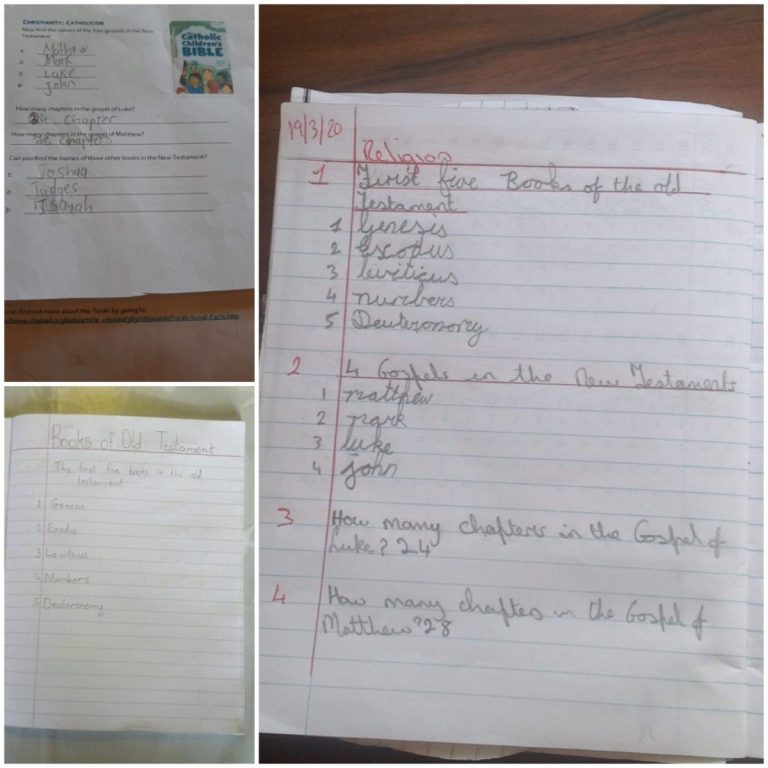 CHRISTIANITY: CATHOLICISM
Now find the names of the four gospels in the New
Testament
1. Mathew
2. Mark
3. Luke
4. John
Catholic
Children's
BIBLE
How many chapters in the gospel of Luke?
24 Chapter
How many chapters in the gospel of Matthew?
28 chapters
Can you find the names of three other books in the New Testament?
1. Joshua
2. Judges
3. Isayah
can find out more about the Torah by going to
Books of Old Testament
The first five books in the old
testament
1 Genesis
2 Exodus
3 Leviticus
4 Numbers
5 Deuteronomy
19/3/20
Religion
1 First five Books of the old
Testament
1 Genesis
2 Excopus
3 leviticus
4 numbers
5 Deuteronomy
2 4 Gospels in the New Testaments
1 matthew
2 mark
3 luke
4 john
3 How many chapters in the Gospel of
Luke? 24
4 How many chapters in the Gospel of
Matthew? 28